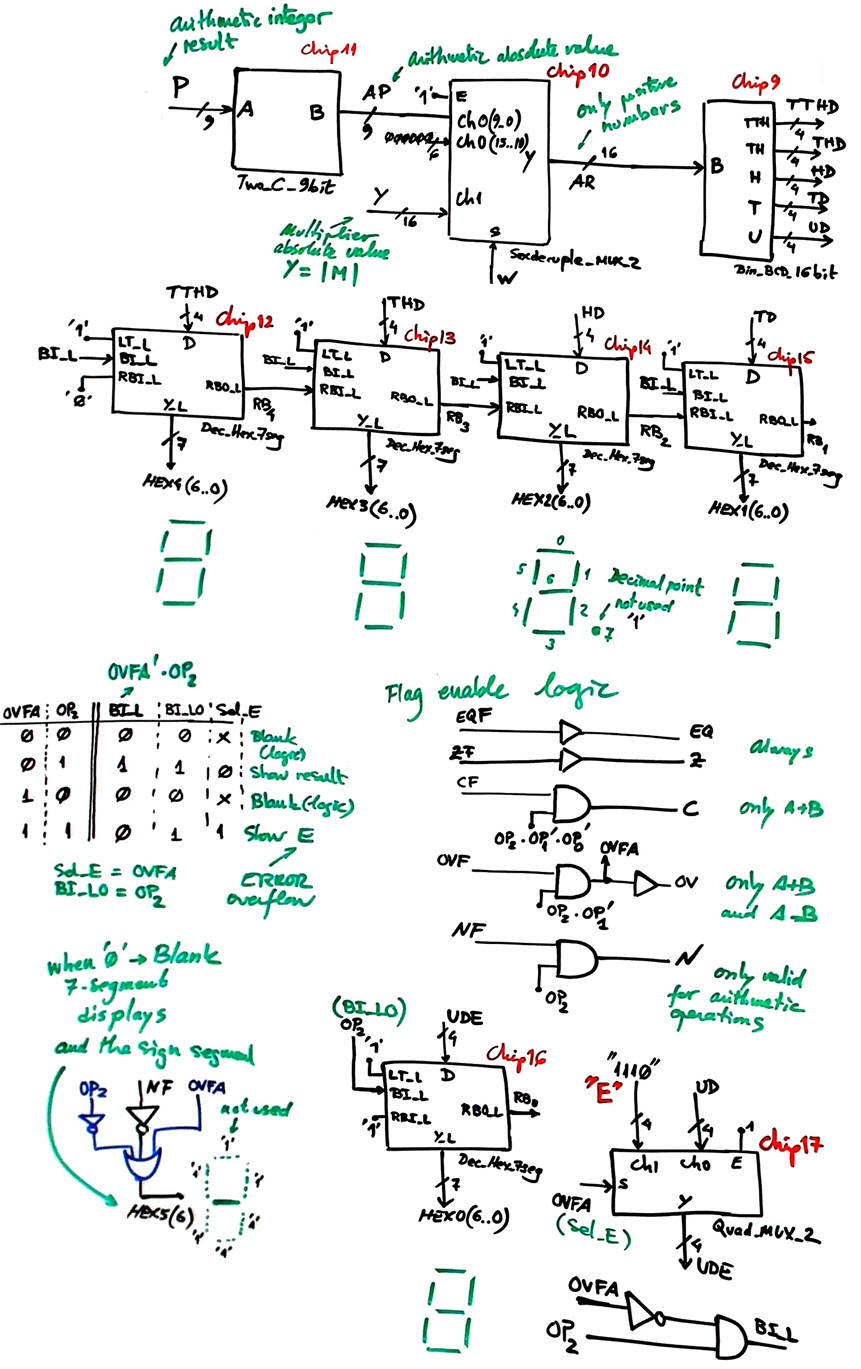 arithmetic integer
result
P
9
A
B
Chip11
Two_C_9bit
arithmetic absolute value
AP
9
Chip10
'1'
E
Ch0(9..0)
Ch0(15..10)
6
Y
Ch1
S
W
Sexdecuple_MUX_2
Y
16
Multiplier
absolute value
Y = |M|
only positive
numbers
16
AR
Chip9
B
TTH
TH
H
T
U
TTHD
4
THD
4
HD
4
TD
4
UD
4
Bin_BCD_16bit
TTHD
4
Chip12
'1'
BI_L
'0'
LT_L
BI_L
RBI_L
D
RBO_L
Y_L
RB4
Dec_Hex_7seg
7
HEX4(6..0)
THD
4
Chip13
'1'
BI_L
LT_L
BI_L
RBI_L
D
RBO_L
Y_L
RB3
Dec_Hex_7seg
7
HEX3(6..0)
HD
4
Chip14
'1'
BI_L
LT_L
BI_L
RBI_L
D
RBO_L
Y_L
RB2
Dec_Hex_7seg
7
HEX2(6..0)
TD
4
Chip15
'1'
BI_L
LT_L
BI_L
RBI_L
D
RBO_L
Y_L
RB1
Dec_Hex_7seg
7
HEX1(6..0)
0
5 6 1
4 2
3
7
Decimal point
not used
'1'
OVFA'·OP2
OVFA OP2 BI_L BI_L0 Sel_E
0 0 0 0 x Blank
(logic)
0 1 1 1 0 Show result
1 0 0 0 x Blank(logic)
1 1 0 1 1 Show E
Sel_E = OVFA
BI_L0 = OP2
ERROR
overflow
Flag enable logic
EQF
EQ
ZF
Z
always
CF
C
only A+B
OP2·OP1'·OP0'
OVFA
OVF
OV
OP2·OP1'
only A+B
and A-B
NF
N
OP2
only valid
for arithmetic
operations
when '0' → Blank
7-segment
displays
and the sign segment
OP2
NF
OVFA
not used
'1'
'1'
'1'
'1'
'1'
'1'
HEX5(6)
(BI_L0)
OP2
'1'
UDE
4
Chip16
LT_L
BI_L
RBI_L
'1'
D
RBO_L
Y_L
RB0
Dec_Hex_7seg
7
HEX0(6..0)
"1110"
"E"
4
UD
4
1
Chip17
Ch1
Ch0
E
S
Y
OVFA
(Sel_E)
Quad_MUX_2
4
UDE
OVFA
OP2
BI_L